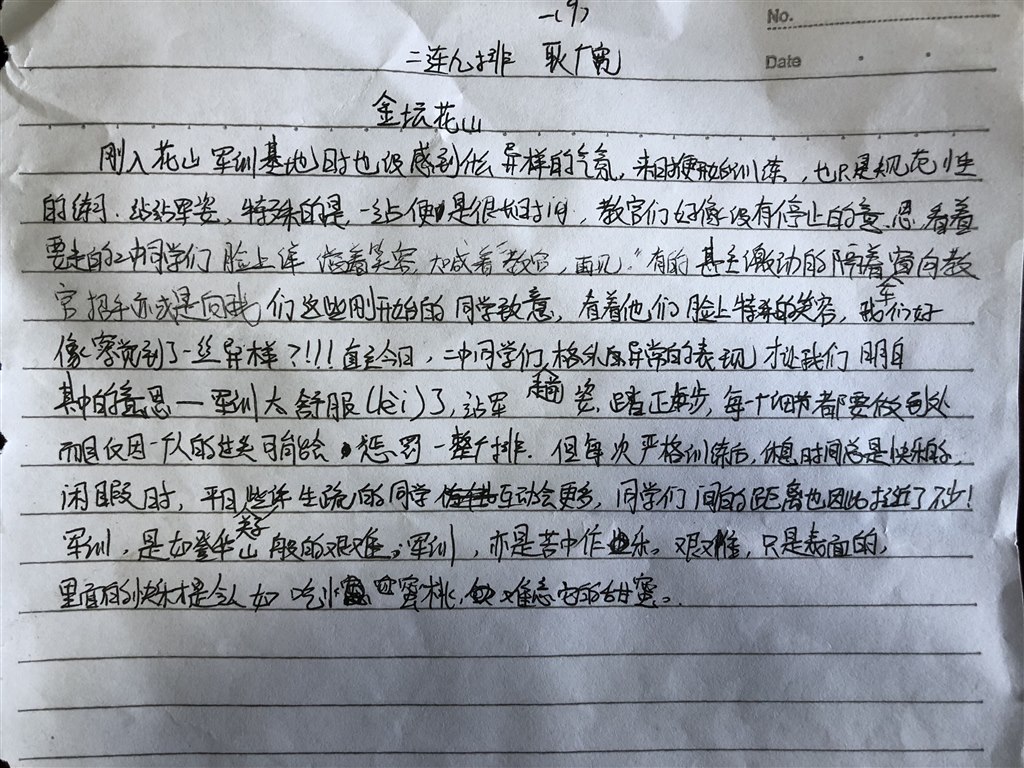 一(9)
No.
二连九排 耿广宽
Date
金坛花山
刚入花山军训基地时也没感到什么异样的气氛,来时便开始的训练,也只是规范性
的练习.站站军姿,特殊的是一站便是很长时间,教官们好像没有停止的意思.看着
要走的二中同学们脸上洋溢着笑容,大喊着"教官,再见."有的甚至激动的隔着窗向教
官招手亦或是向我们这些刚开始的同学致意,看着他们脸上特殊的笑容,我们好
像察觉到了一丝异样?!!!直至今日,二中同学们格外异常的表现才让我们明白
其中的意思一军训太舒服(lèi)了,站军姿.踏正步,每一个细节都要做到处
而且仅因一人的过失可能会惩罚一整个排.但每次严格训练后,休息时间总是快乐的,
闲暇时,平日些许生疏的同学互动会更多,同学们间的距离也因此拉近了不少!
军训,是如登华山般的艰难。军训,亦是苦中作乐.艰难,只是表面的,
里面的快乐才是令人如吃水蜜桃,难忘它的甜蜜。